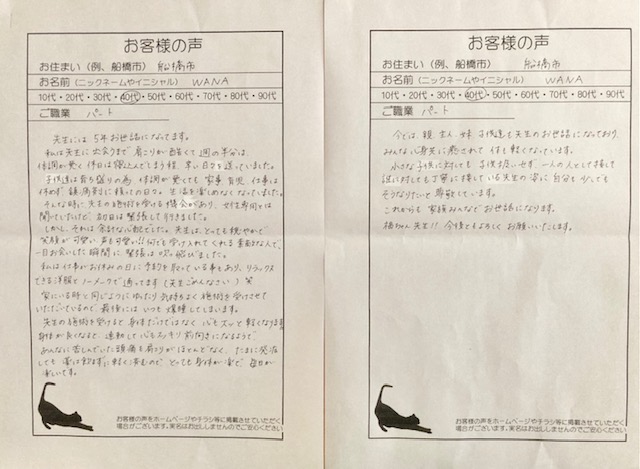 お客様の声
お住まい（例、船橋市） 船橋市
お名前（ニックネームやイニシャル） WANA
10代・20代・30代・40代・50代・60代・70代・80代・90代
ご職業 パート
先生には 5年お世話になってます。
私は先生に出会うまで 肩こりが酷くて 週の半分は
体調が悪く 休日は寝込んでしまう程、辛い日々を送っていました。
子供達は育ち盛りの為 体調が悪くても 家事 育児 仕事は
休めず 鎮痛剤に頼っての日々。 生活を楽しめなくなっていました。
そんな時に 先生の施術を受ける機会があり、女性専用とは
聞いていたけど、初回は緊張して行きました。
しかし、それは余計な心配でした。先生は、とっても穏やかで
笑顔が可愛い 声も可愛い!! 何でも受け入れてくれる 素敵な人で、
一目お会いした瞬間に 緊張は 吹っ飛びました。
私は仕事がお休みの日に予約を取っている事もあり、リラックス
できる洋服とノーメークで通ってます（先生ごめんなさい）笑
家にいる時と同じように ゆったり 気持ちよく施術を受けさせて
いただいているので、最後には いつも 爆睡してしまいます。
先生の施術を受けると 身体だけではなく 心もスッと軽くなります。
身体が良くなると、運動して 心もスッキリ 前向きになるようで
あんなに苦しんでいた頭痛も肩こりがほとんどなく、たまに発症
しても 薬は飲まずに 軽く済むので とっても身体が楽で 毎日が
楽しいです。
お客様の声をホームページやチラシ等に掲載させていただく
場合がございます。実名はお出ししませんのでご安心ください
お客様の声
お住まい（例、船橋市） 船橋市
お名前（ニックネームやイニシャル） WANA
10代・20代・30代・40代・50代・60代・70代・80代・90代
ご職業 パート
今では、親、主人、妹 子供達も 先生のお世話になっており、
みんな、心身共に癒されて 体も軽くなっています。
小さな子供に対しても 子供扱いせず 一人の人として接して
誰に対しても丁寧に接している先生の姿に 自分も少しでも
そうなりたいと尊敬しています。
これからも 家族みんなで お世話になります。
先生!! 今後ともよろしく お願いいたします。
お客様の声をホームページやチラシ等に掲載させていただく
場合がございます。実名はお出ししませんのでご安心ください